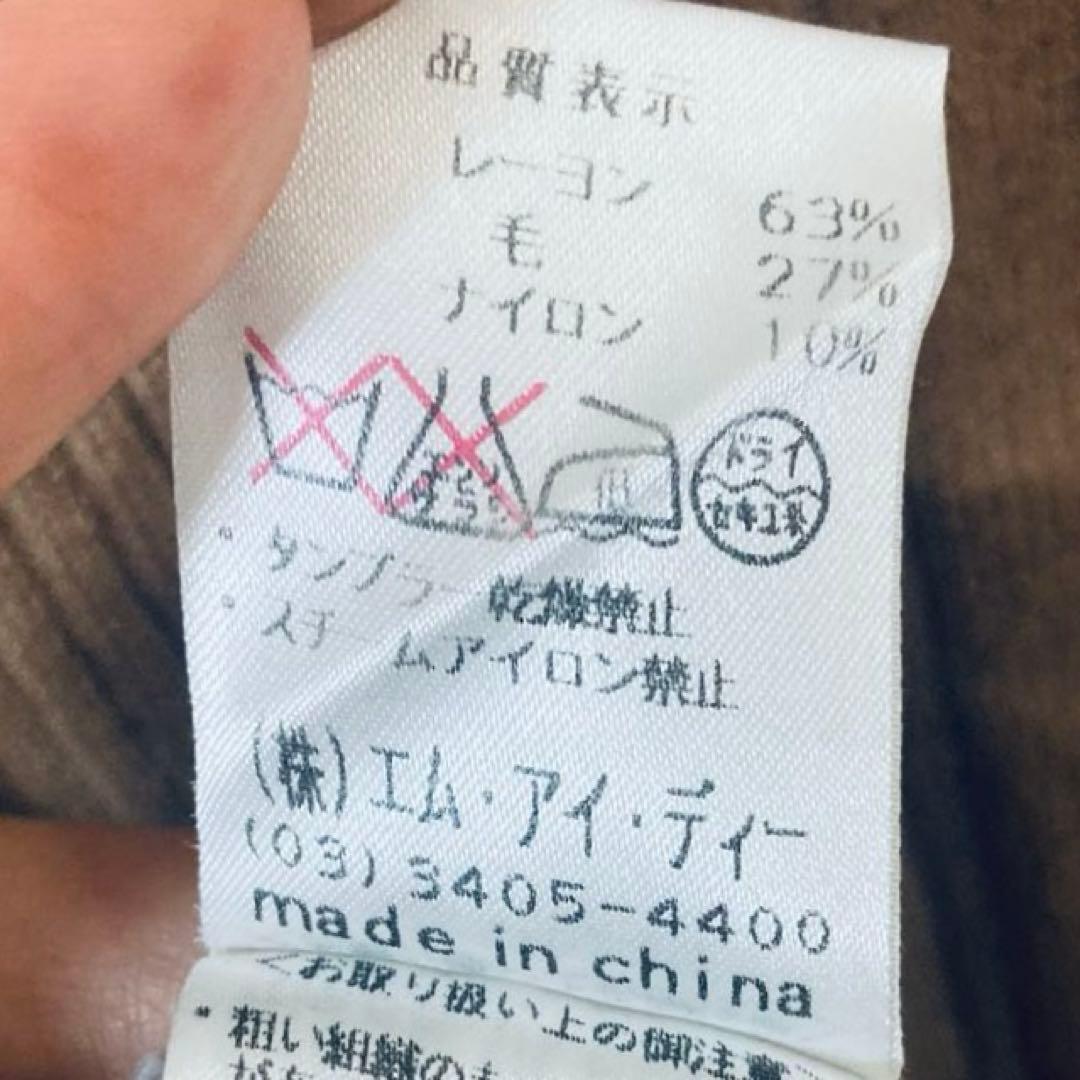 品質表示
レーヨン 63%
毛 27%
ナイロン 10%
エンソ
サラシ
ドライ
セキユ系
・タンブラー乾燥禁止
・スチームアイロン禁止
(株)エム・アイ・ディー
(03)3405-4400
made in china
お取り扱い上の御注意
・粗い組織のも